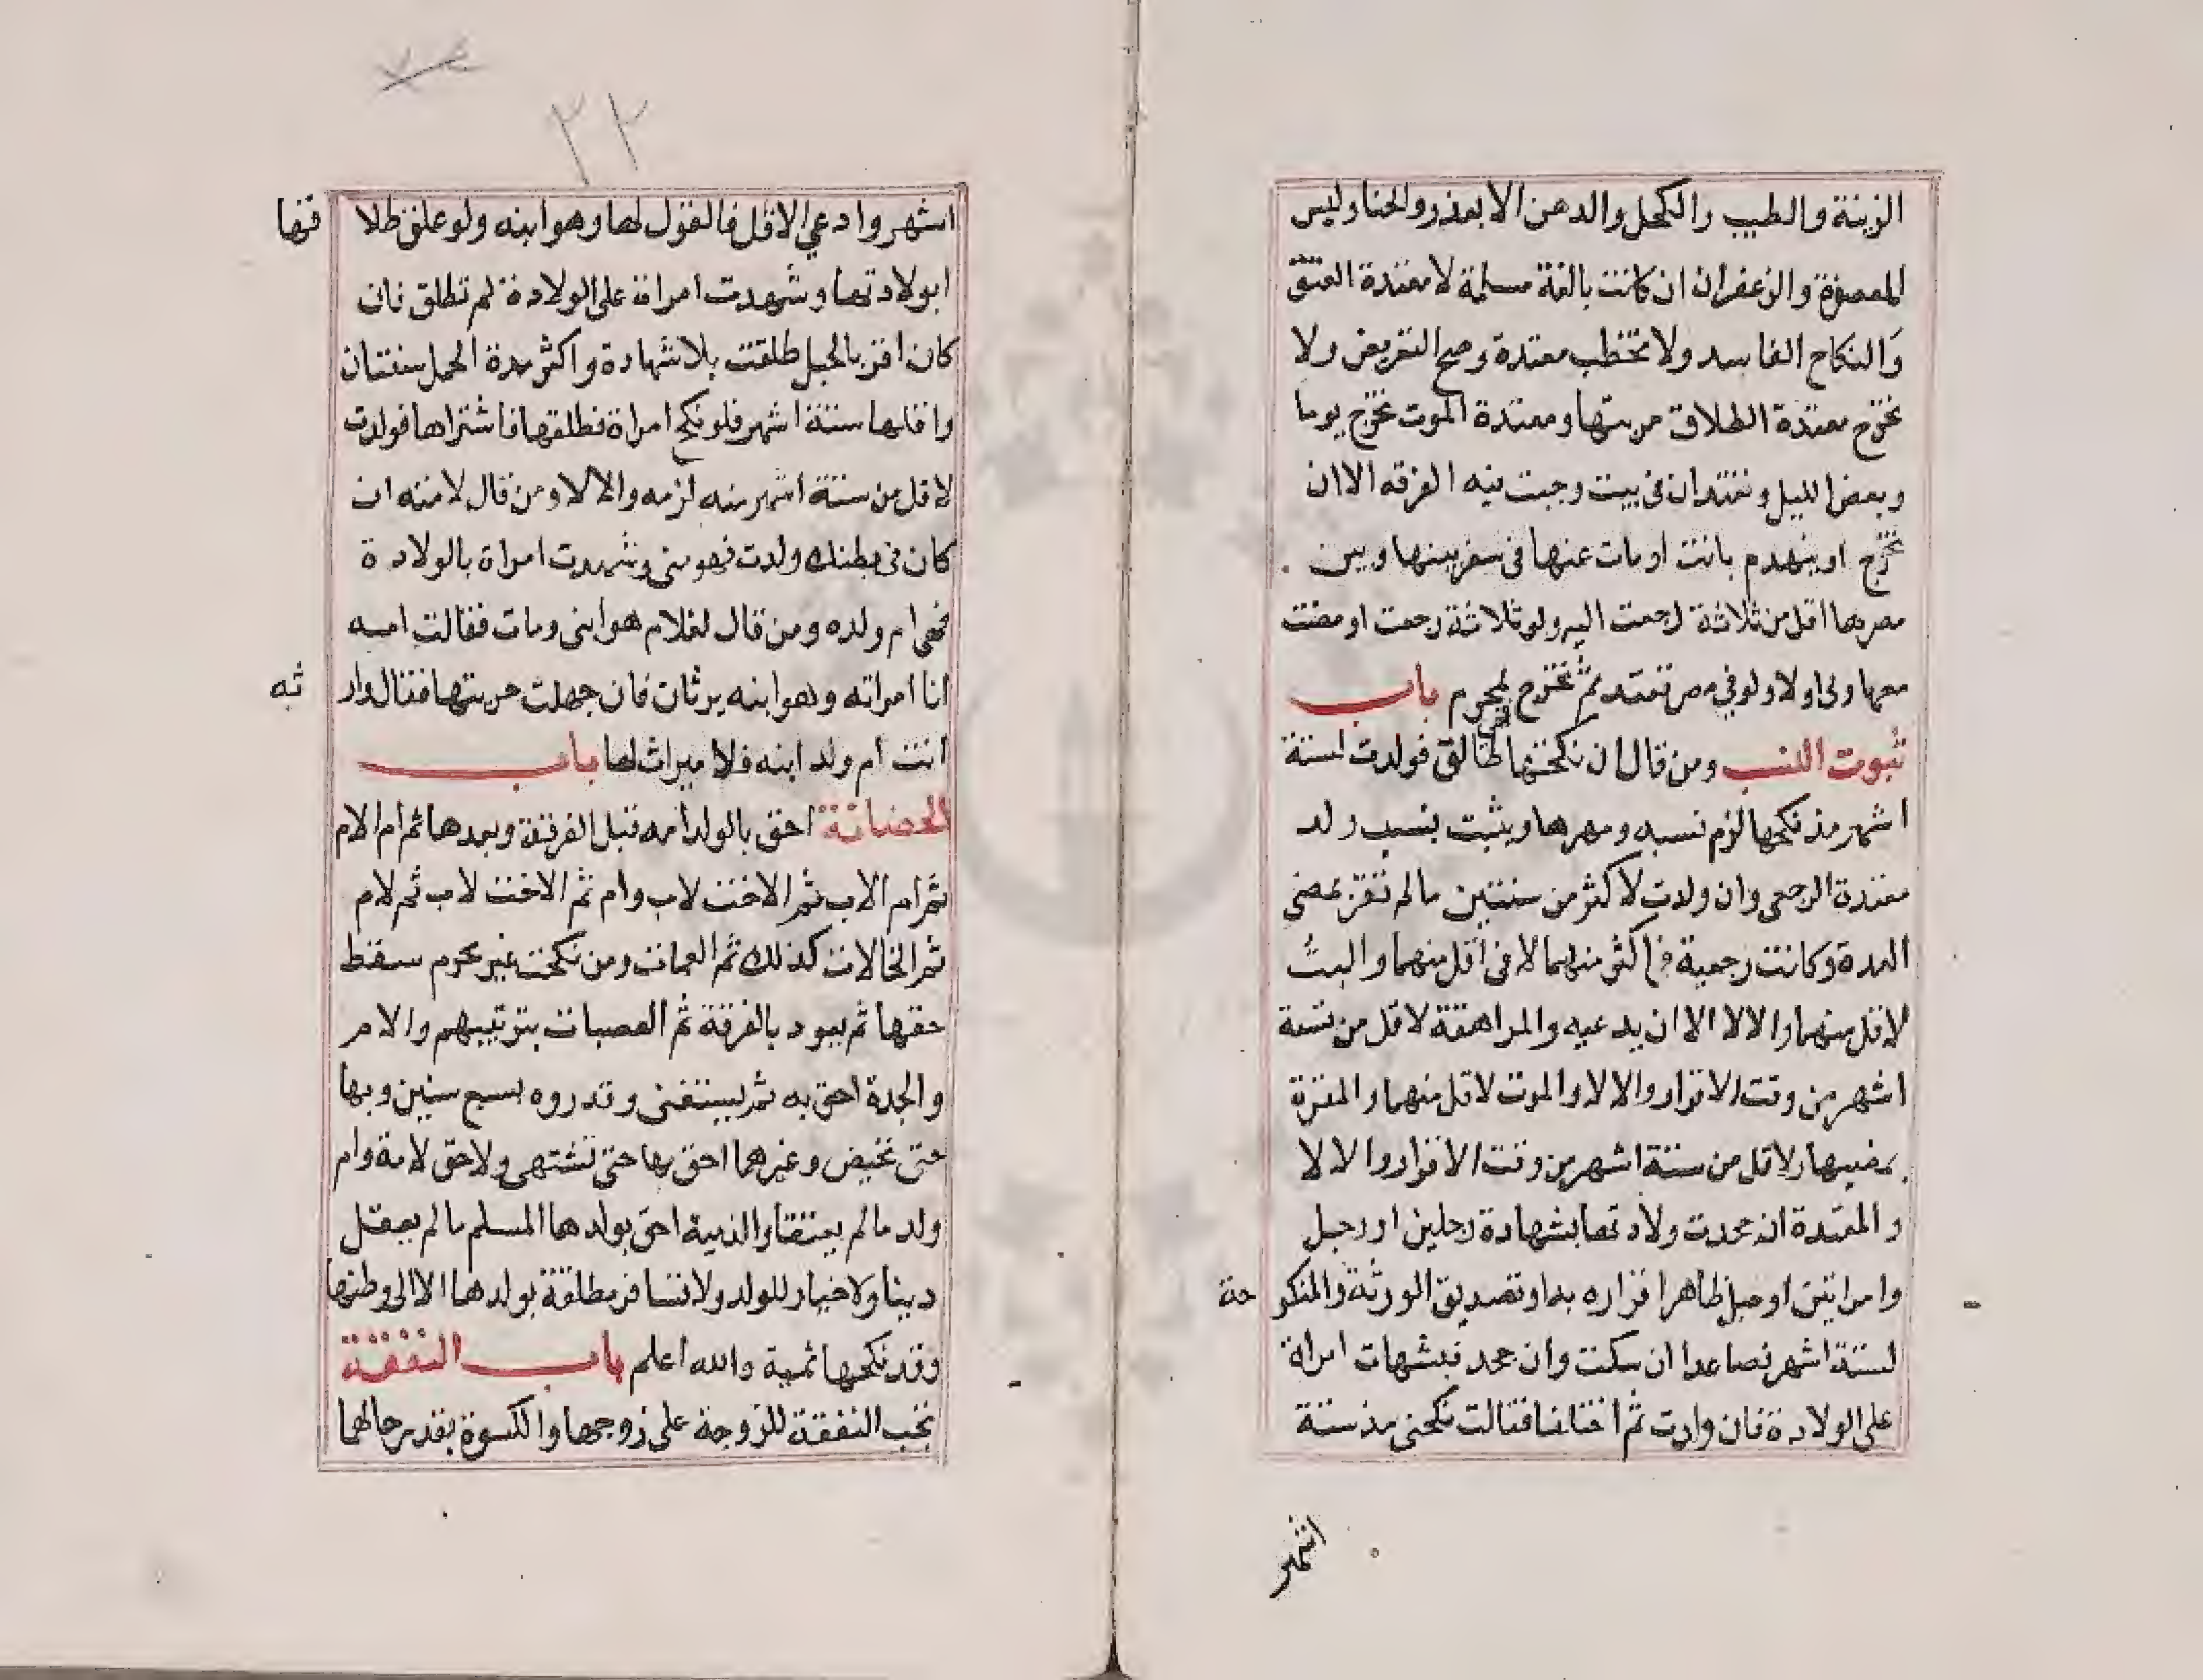 الزينة والطيب والكحل والدهن الا بعذر والحنا وليس
المعصفرة والزعفران ان كانت بالغة مسلمة لا معتدة العتق
والنكاح الفاسد ولا تخطب معتدة وصح التعريض ولا
تخرج معتدة الطلاق من بيتها ومعتدة الموت تخرج يوما
وبعض الليل وتعتدان في بيت وجبت فيه الفرقه الا ان
تخرج او ينهدم بانت او مات عنها في سفر بينها وبين
مصرها اقل من ثلاثة رجعت اليه ولو ثلاثة رجعت او مضت
معها ولي او لا ولو في مصر تعتد ثم تخرج بمحرم باب
ثبوت النسب ومن قال ان نكحتها فهي طالق فولدت لستة
اشهر مذ نكحها لزم نسبه ومهرها ويثبت نسب ولد
معتدة الرجعي وان ولدت لاكثر من سنتين ما لم تقر بمضي
العدة وكانت رجعية في اكثر منهما لا في اقل منهما والبت
لاقل منهما والا لا الا ان يدعيه والمراهقة لاقل من تسعة
اشهر من وقت الاقرار والا لا والموت لاقل منهما والمقرة
بمضيها لاقل من ستة اشهر من وقت الاقرار والا لا
والمعتدة ان جحدت ولادتها بشهادة رجلين او رجل
وامراتين او حبل ظاهر اقراره به او تصديق الورثة والمنكوحة
لستة اشهر فصاعدا ان سكت وان جحد فبشهات امراة
على الولادة فان ولدت ثم اختلفا فقالت نكحني مذ ستة
اشهر
٢٢
اشهر وادعي الاقل فالقول لها وهو ابنه ولو علق طلاقها
ابولادتها وشهدت امراة على الولادة لم تطلق فان
كان اقر بالحبل طلقت بلا شهادة واكثر مدة الحمل سنتان
واقلها ستة اشهر فلو نكح امراة فطلقها فاشتراها فولدت
لاقل من ستة اشهر منه لزمه والا لا ومن قال لامته ان
كان في بطنك ولدت فهو مني وشهدت امراة بالولادة
فهي ام ولده ومن قال لغلام هو ابني ومات فقالت امه
انا امراته وهو ابنه يرثان فان جهلت حريتها فقال وارثه
انت ام ولد ابنه فلا ميراث لها باب
الحضانة احق بالولد امه قبل الفرقة وبعدها ثم ام الام
ثم ام الاب ثم الاخت لاب وام ثم الاخت لاب ثم لام
ثم الخالات كذلك ثم العمات ومن نكحت غير محرم سقط
حقها ثم يعود بالفرقة ثم العصبات بترتيبهم والام
والجدة احق به ثم يستغنى وقدروه بسبع سنين وبها
حتى تحيض وغيرهما احق بها حتى تشتهى ولا حق لامة وام
ولد ما لم يعتقا والذمية احق بولدها المسلم ما لم يعقل
دينا ولا خيار للولد ولا تسافر مطلقة بولدها الا الى وطنها
وقد نكحها ثمية والله اعلم باب النفقة
تجب النفقة للزوجة على زوجها والكسوة بقدر حالهما